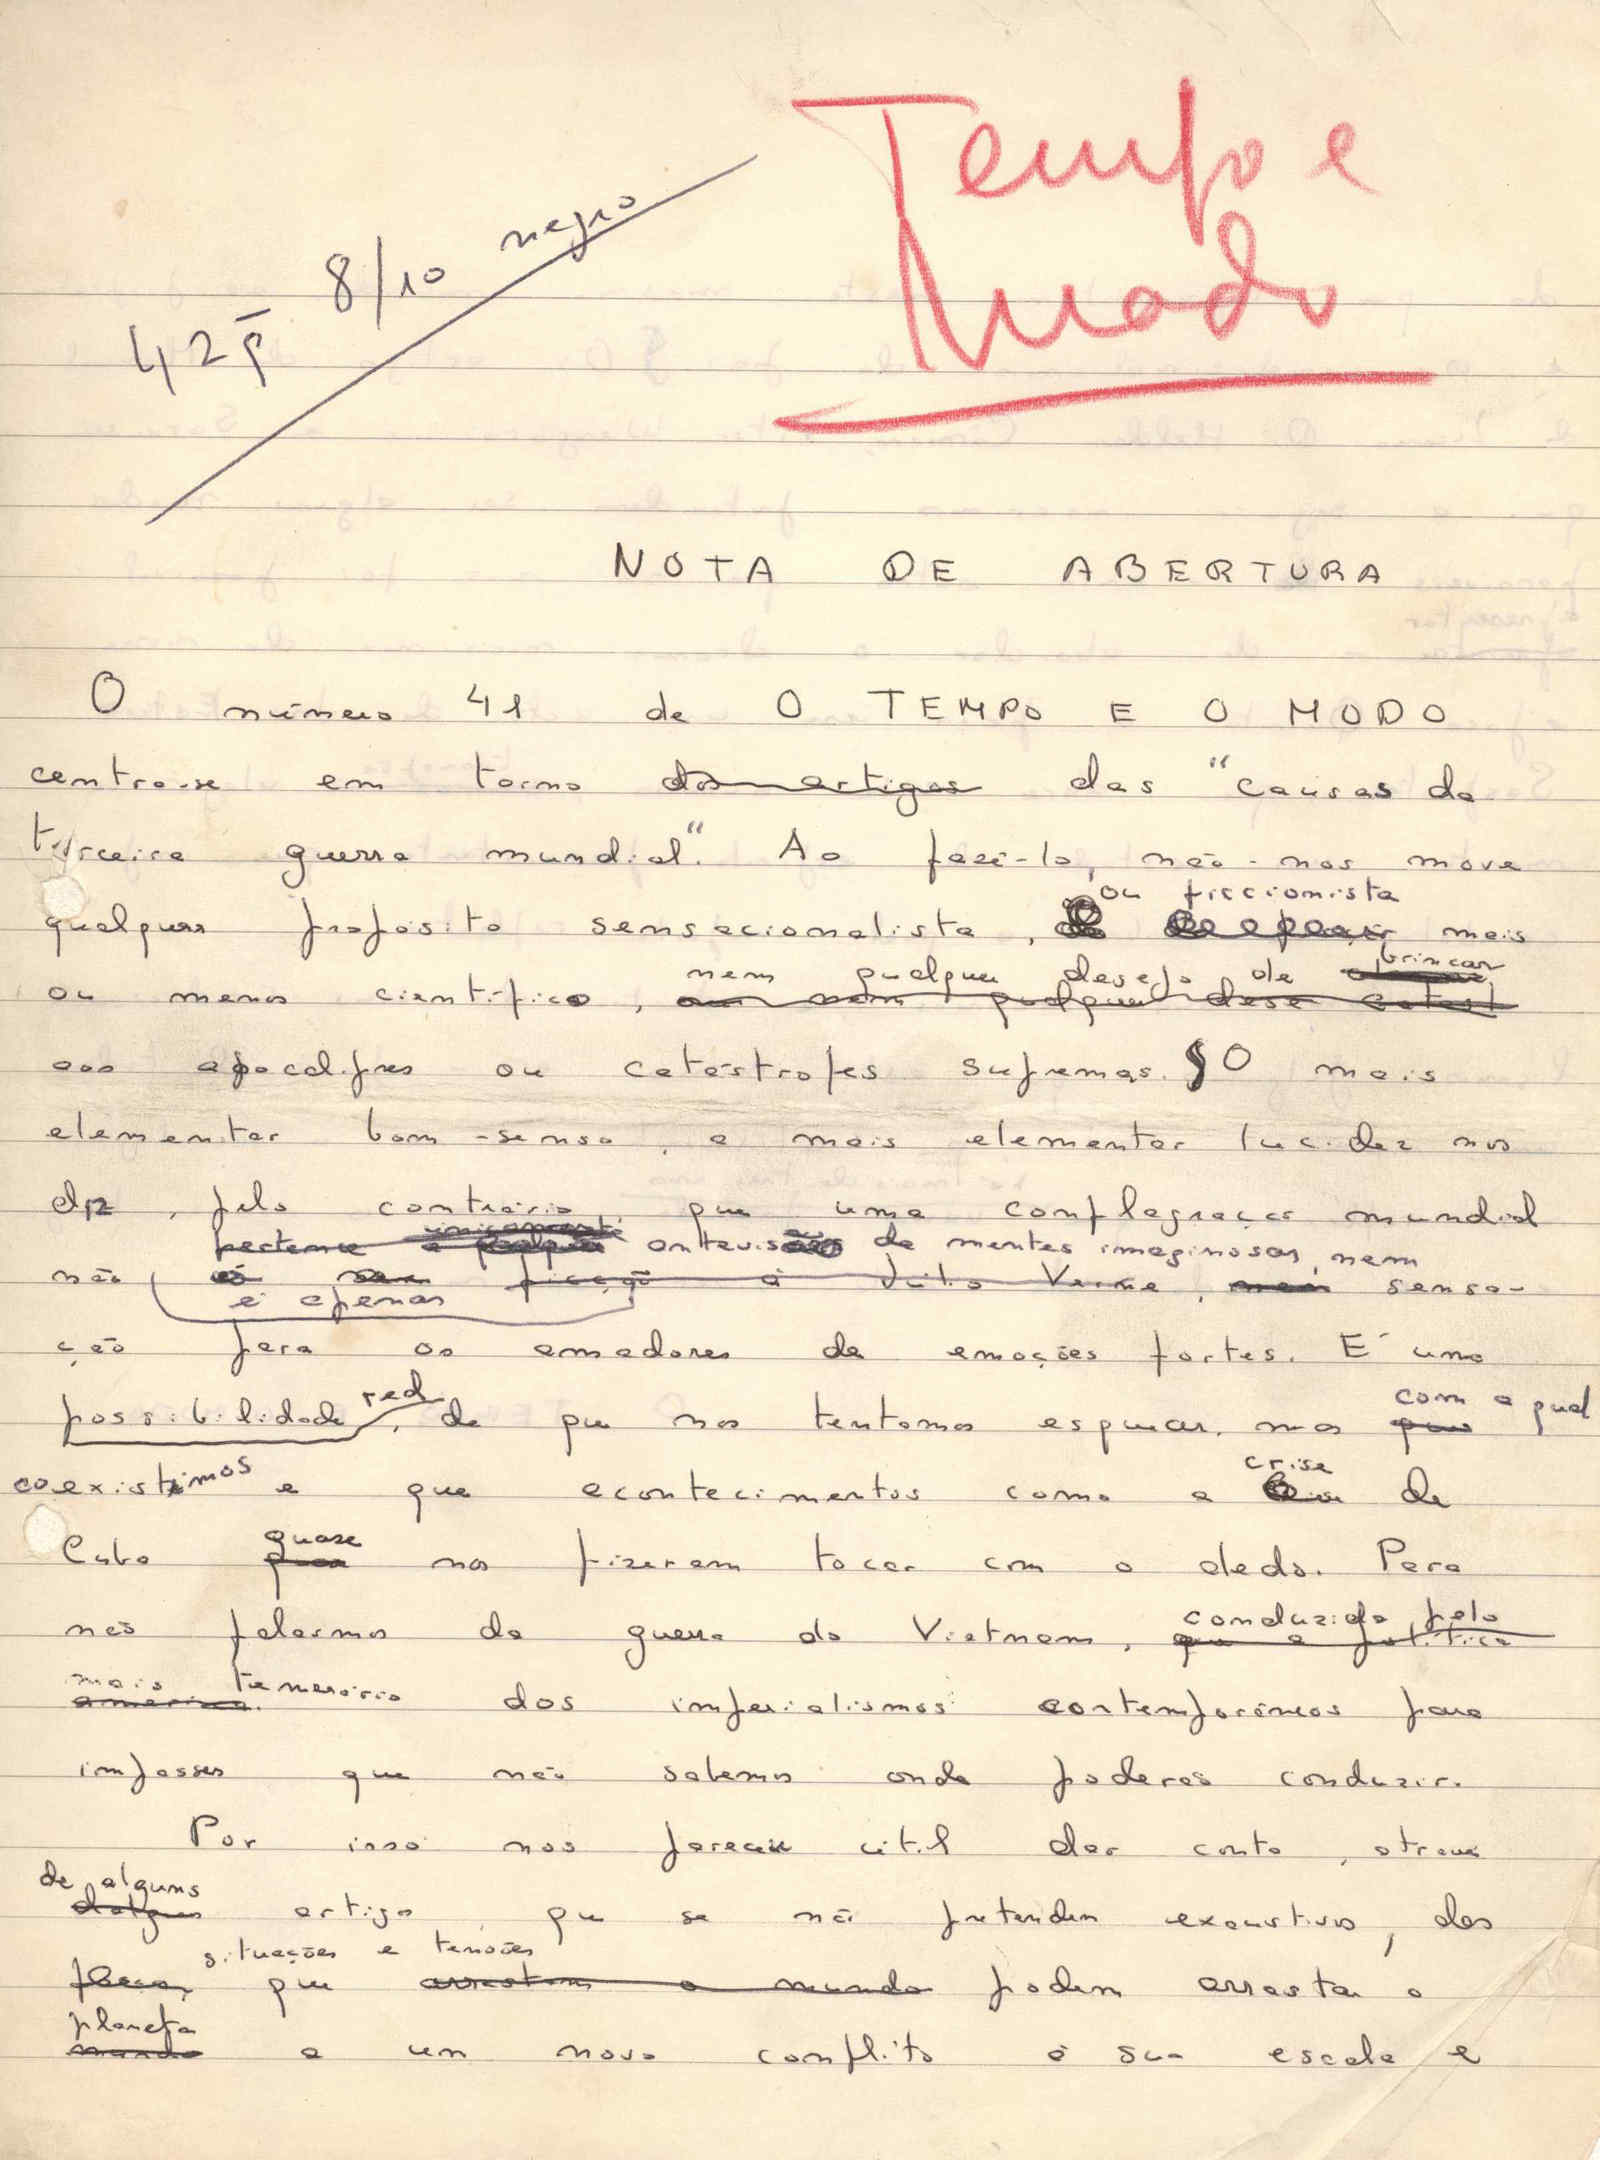 Tempo e
Modo
42 p 8/10 negro
NOTA DE ABERTURA
O número 41 de O TEMPO E O MODO
centra-se em torno dos artigos das "causas da
terceira guerra mundial". Ao fazê-lo, não-nos move
ou ficcionista
qualquer propósito sensacionalista, mais
nem qualquer desejo de brincar
ou menos científico, nem qualquer dese catast
aos apocalipses ou catástrofes supremas. § O mais
elementar bom-senso, a mais elementar lucidez nos
diz, pelo contrário, que uma conflagração mundial
unicamente
pertence a qualquer antevisão de mentes imaginosas, nem
não é ser ficção à Júlio Verne, nem sensa-
é apenas
ção para os amadores de emoções fortes. É uma
possibilidade real, de que nos tentamos esquecer, mas com a qual
coexistimos e que acontecimentos como a crise de
Cuba quase nos fizeram tocar com o dedo. Para
não falarmos da guerra do Vietnam, conduzida pelo
que a política
mais temerário dos imperialismos contemporâneos para
america
impasses que não sabemos onde poderão conduzir.
Por isso nos pareceu útil dar conta, através
de alguns
artigos que se não pretendem exaustivos, das
situações e tensões
que arrastam o mundo podem arrastar o
planeta
mundo a um novo conflito à sua escala e